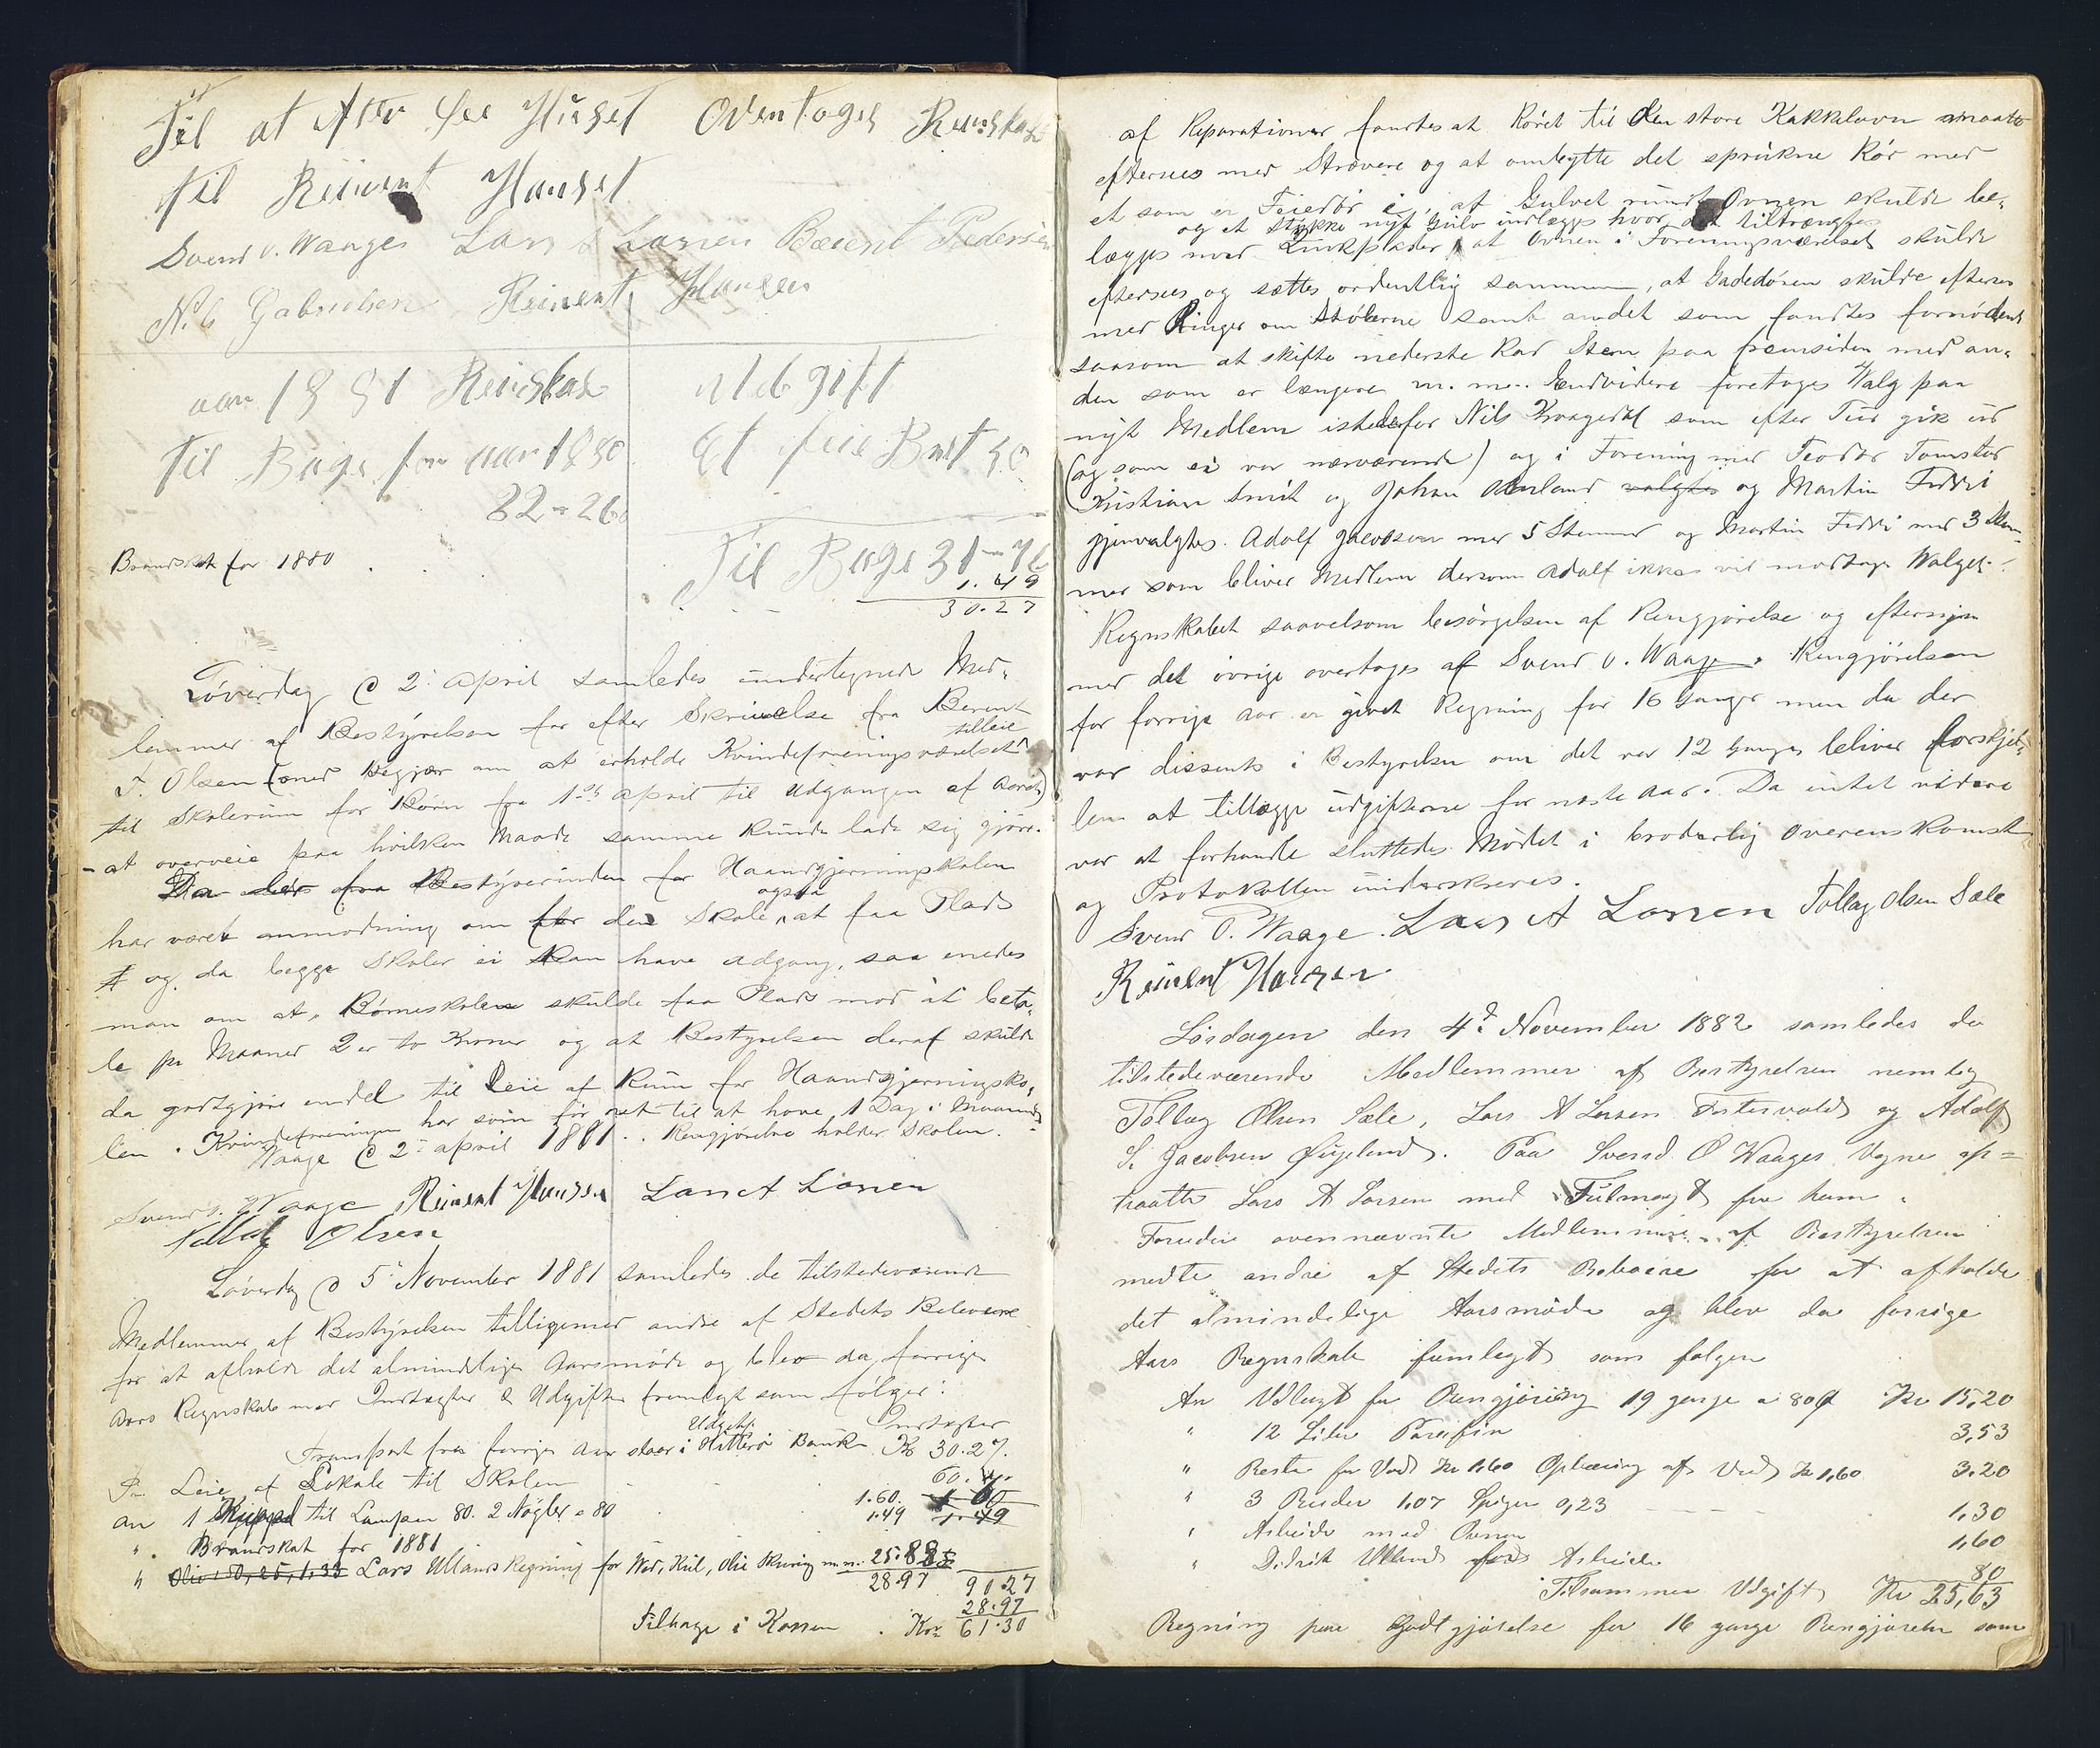 Til at Efter see Huset Overtoges Reinskab
til Reinert Hanset
Svend O. Waages Lars A Larsen Berent Pedersen
N. G Gabrielsen Reinert Hansen
aar 1881 Reinskab
til Bage fra aar 1880
32-26
udgift
Et feie Bret 50
Til Bage 31-76
1.49
30.27
Brandskat for 1880
Löverdag @ 2. april samledes undertegnede Med-
lemmer af Bestÿrelsen for efter Skrivelse fra Berent
T. Olsen (med Begjær om at erholde Kvindeforeningsværelset tilleie
til Skolerum for Börn fra 1ste april til Udgangen af Aaret)
- at overveie paa hvilken Maade samme kunde lade sig gjöre.
Da der fra Bestÿrerinden for Haandgjerningskolen
har været anmodning om for den Skole, ogsaa at faa Plads
og da begge Skoler ei kan have adgang, saa enedes
man om at, Börneskolen skulde faa Plads mod at beta-
le pr Maaned 2 er to Kroner og at Bestyrelsen deraf skulde
da godtgjöre endel til Leie af Rum for Haandgjerningsko-
len. Kvindeforeningen har som för ret til at have 1 Dag i Maaneden
Waage @ 2 april 1881. Rengjörelse holder Skolen.
Svend O. Waage Reinert Hansen Lars A Larsen
Tollag Olsen
Löverdag @ 5 November 1881 samledes de tilstedeværende
Medlemmer af Bestÿrelsen tilligemed andre af Stedets Beboere
for at afholde det almindelige Aarsmöde og blev da forrige
Aars Regnskab med Indtægter & Udgifter fremlagt som fölger:
Udgift. Indtægter
Transport fra forrige Aar staar i Hitterö Bank Kr 30.27.
Pr Leie af Lokale til Skolen 60. "
an 1 Kuppel til Lampen 80. 2 Nögler a 80 1.60. 1 60
" Brandskat for 1881 1.49 1.49
" Olie 50, 25, 1,35 Lars Ullands Regning for Ved, Kul, Olie Skuring m.m. 25.88
28.97 90.27
28.97
Tilbage i Kassen . Kr 61.30
af Reparationer fandtes at Röret til den store Kakkelovn maatte
eftersees med Strævere og at ombytte det sprukne Rör med
et som er Feiedör i, at Gulvet rundt Ovnen skulde be-
og et Stykke nyt Gulv indlægges hvor det tiltrænges
lægges med Zinkplader, at Ovnen i Foreningsværelset skulde
eftersees og sættes ordentlig sammen, at Gadedören skulde eftersees
med Ringer om Stolperne samt andet som fandtes fornödent
saasom at skifte nederste Rad Steen paa fremsiden med an-
den som er længere m. m. Endvidere foretoges Valg paa
nyt Medlem istedetfor Nils Kraagedal som efter Tur gik ud
(og som ei var nærværende) og i Forening med Teodor Tomstad
Kristian Smit og Johan Aanland valgtes og Martin Fedde
gjenvalgtes. Adolf Jacobsen med 5 Stemmer og Martin Fedde med 3 Stem-
mer som bliver Medlem dersom Adolf ikke vil modtage Valget.
Regnskabet saavelsom besörgelsen af Rengjörelse og eftersyn
med det övrige overtoges af Svend O. Waage. Rengjörelsen
for forrige Aar er givet Regning for 16 Gange men da der
var dissents i Bestyrelsen om det var 12 Gange bliver forskjel-
len at tillægge udgifterne for næste Aar. Da intet videre
var at forhandle sluttedes Mödet i broderlig Overenskomst
og Protokollen underskreves.
Svend O. Waage. Lars A Larsen Tollag Olsen Sæle
Reinert Hansen
Lördagen den 4de November 1882 samledes de
tilstedeværende Medlemmer af Bestyrelsen nemlig
Tollag Olsen Sæle, Lars A Larsen Østervold og Adolf
S. Jacobsen Øigelend. Paa Svend O Waages Vegne op=
traatte Lars A Larsen med Fulmagt fra ham.
Foruden ovennævnte Medlemmer af Bestyrelsen
mødte andre af Stedets Beboere for at afholde
det almindelige Aarsmøde og blev da forrige
Aars Regnskab fremlagt som følger
An Udlagt for Rengjöring 19 gange a 80 Ø Kr 15,20
" 12 Liter Parafin 3,53
" Resten for Ved Kr 1,60 Ophuging af Ved Kr 1,60 3.20
" 3 Ruder 1,07 Spiger 0,23 1,30
" Arbeide med Ovnen 1,60
" Didrik Ulland for Arbeide 80
Tilsammen Udgift Kr 25,63
Regning paa Godtgjörelse for 16 gange Rengjörelse som